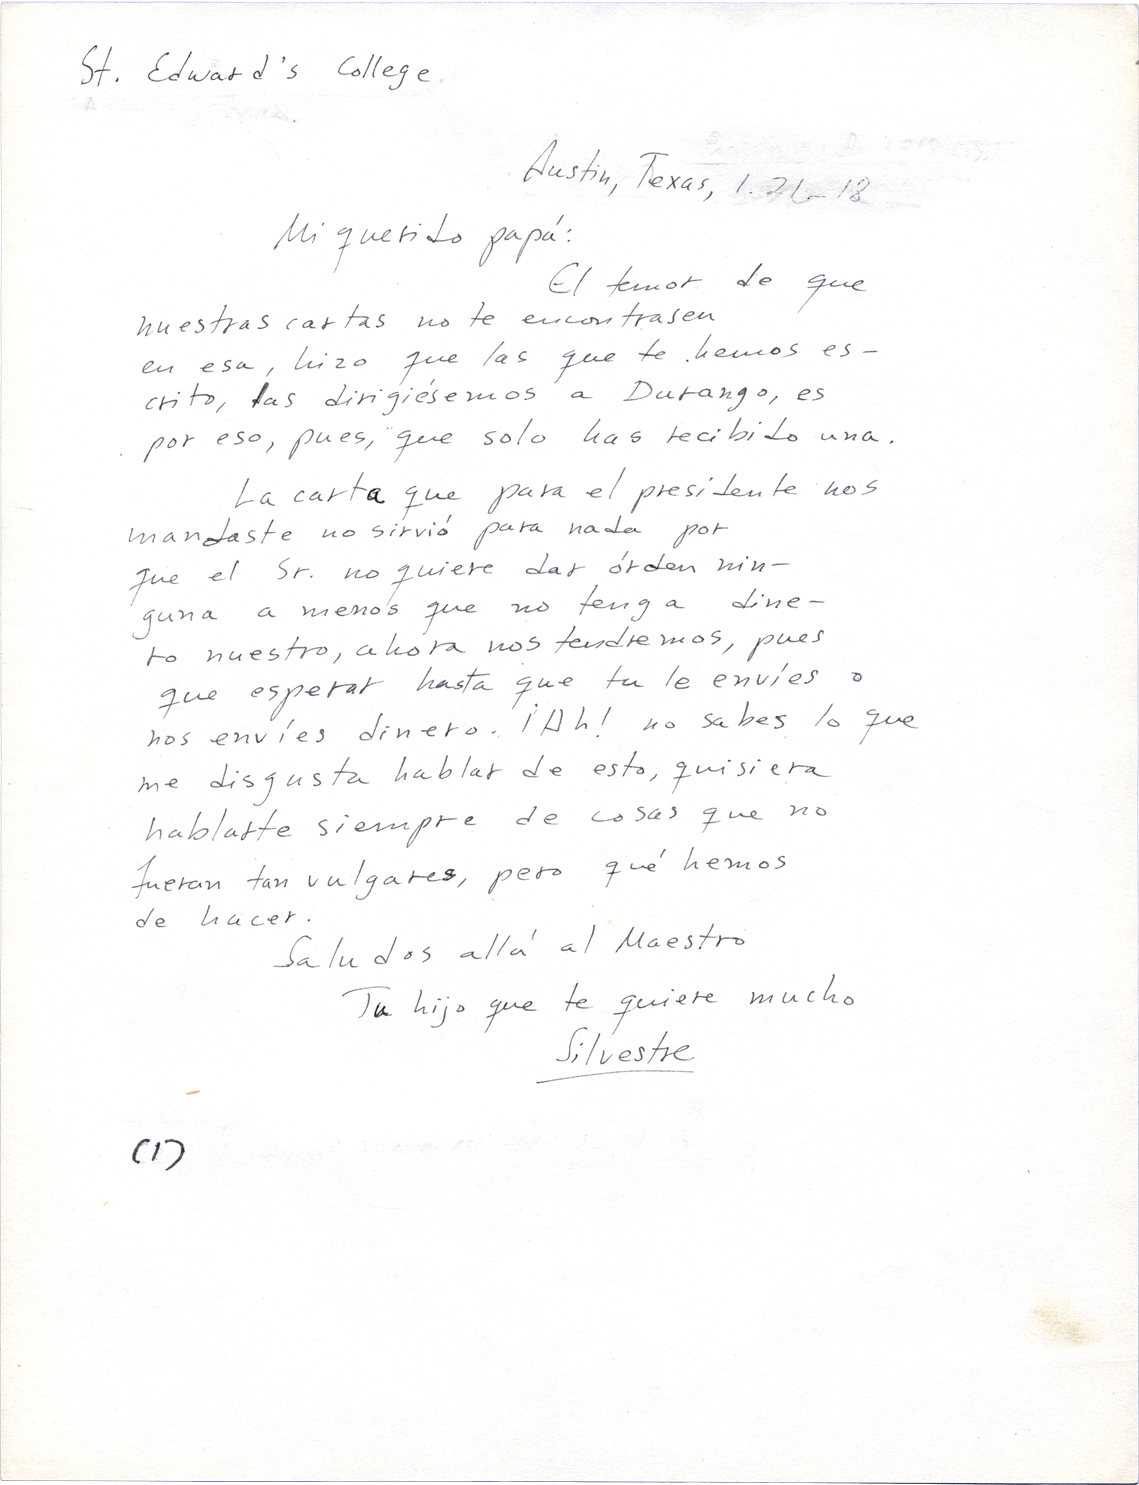 St. Edward's College
Austin, Texas, 1.21-18
Mi querido papá:
El temor de que
nuestras cartas no te encontrasen
en esa, hizo que las que te hemos es-
crito, las dirigiésemos a Durango, es
por eso, pues, que solo has recibido una.
La carta que para el presidente nos
mandaste no sirvió para nada por
que el Sr. no quiere dar órden nin-
guna a menos que no tenga dine-
ro nuestro, ahora nos tendremos, pues
que esperar hasta que tu le envíes o
nos envíes dinero. ¡Ah! no sabes lo que
me disgusta hablar de esto, quisiera
hablarte siempre de cosas que no
fueran tan vulgares, pero qué hemos
de hacer.
Saludos allá al Maestro
Tu hijo que te quiere mucho
Silvestre
(1)